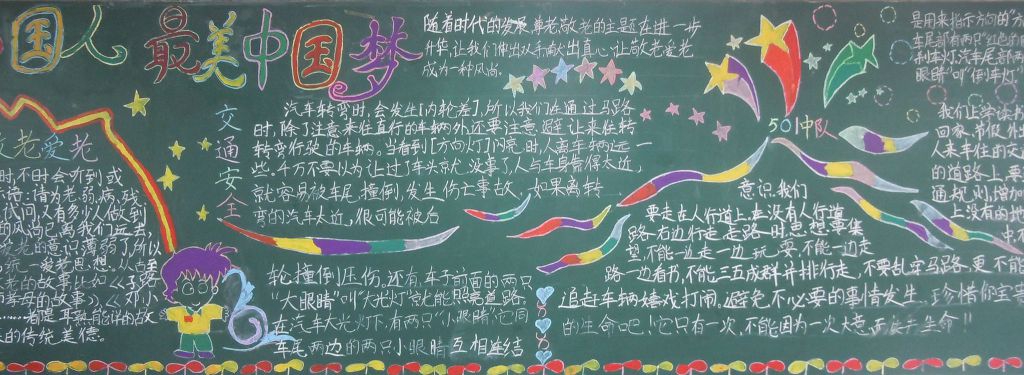 国人 最美中国梦
敬老爱老
时,不时会听到或
老的故事比如《子路
的传统美德。
随着时代的发展,尊老敬老的主题在进一步
升华,让我们伸出双手献出真心,让敬老爱老
成为一种风尚。
交通安全
汽车转弯时,会发生[内轮差],所以我们在通过马路
时,除了注意来往直行的车辆外还要注意避让来往转
转弯行驶的车辆。当看到[方向灯]闪亮时人离车辆远一
些。千万不要以为让过了车头就没事了人与车身靠得太近
就容易被车尾撞倒发生伤亡事故,如果离转
弯的汽车太近,很可能被后
轮撞倒压伤,还有车子前面的两只
"大眼睛"叫"大光灯"就能照亮道路
在汽车大光灯下,有两只"小眼睛"它同
车尾两边的两只小眼睛互相连结
501中队
意识,我们
要走在人行道上,在没有人行道
路右边行走,走路时思想要集
望,不能一边走一边玩耍,不能一边走
路一边看书,不能三五成群并排行走,不要乱穿马路,更不能
追赶车辆嬉戏打闹,避免不必要的事情发生,珍惜你宝贵
的生命吧!它只有一次,不能因为一次大意而放弃生命!!
是用来指示方向的"方
车尾部有两只红色的
刹车灯,汽车尾部两
眼睛"叫"倒车灯"
我们上学读书
回家,节假外出
人来车往的交通
的道路上,要
通规则,增加
上没有的地